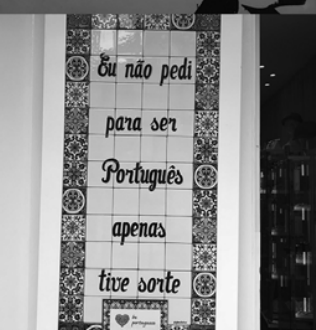 Eu não pedi
para ser
Português
apenas
tive sorte